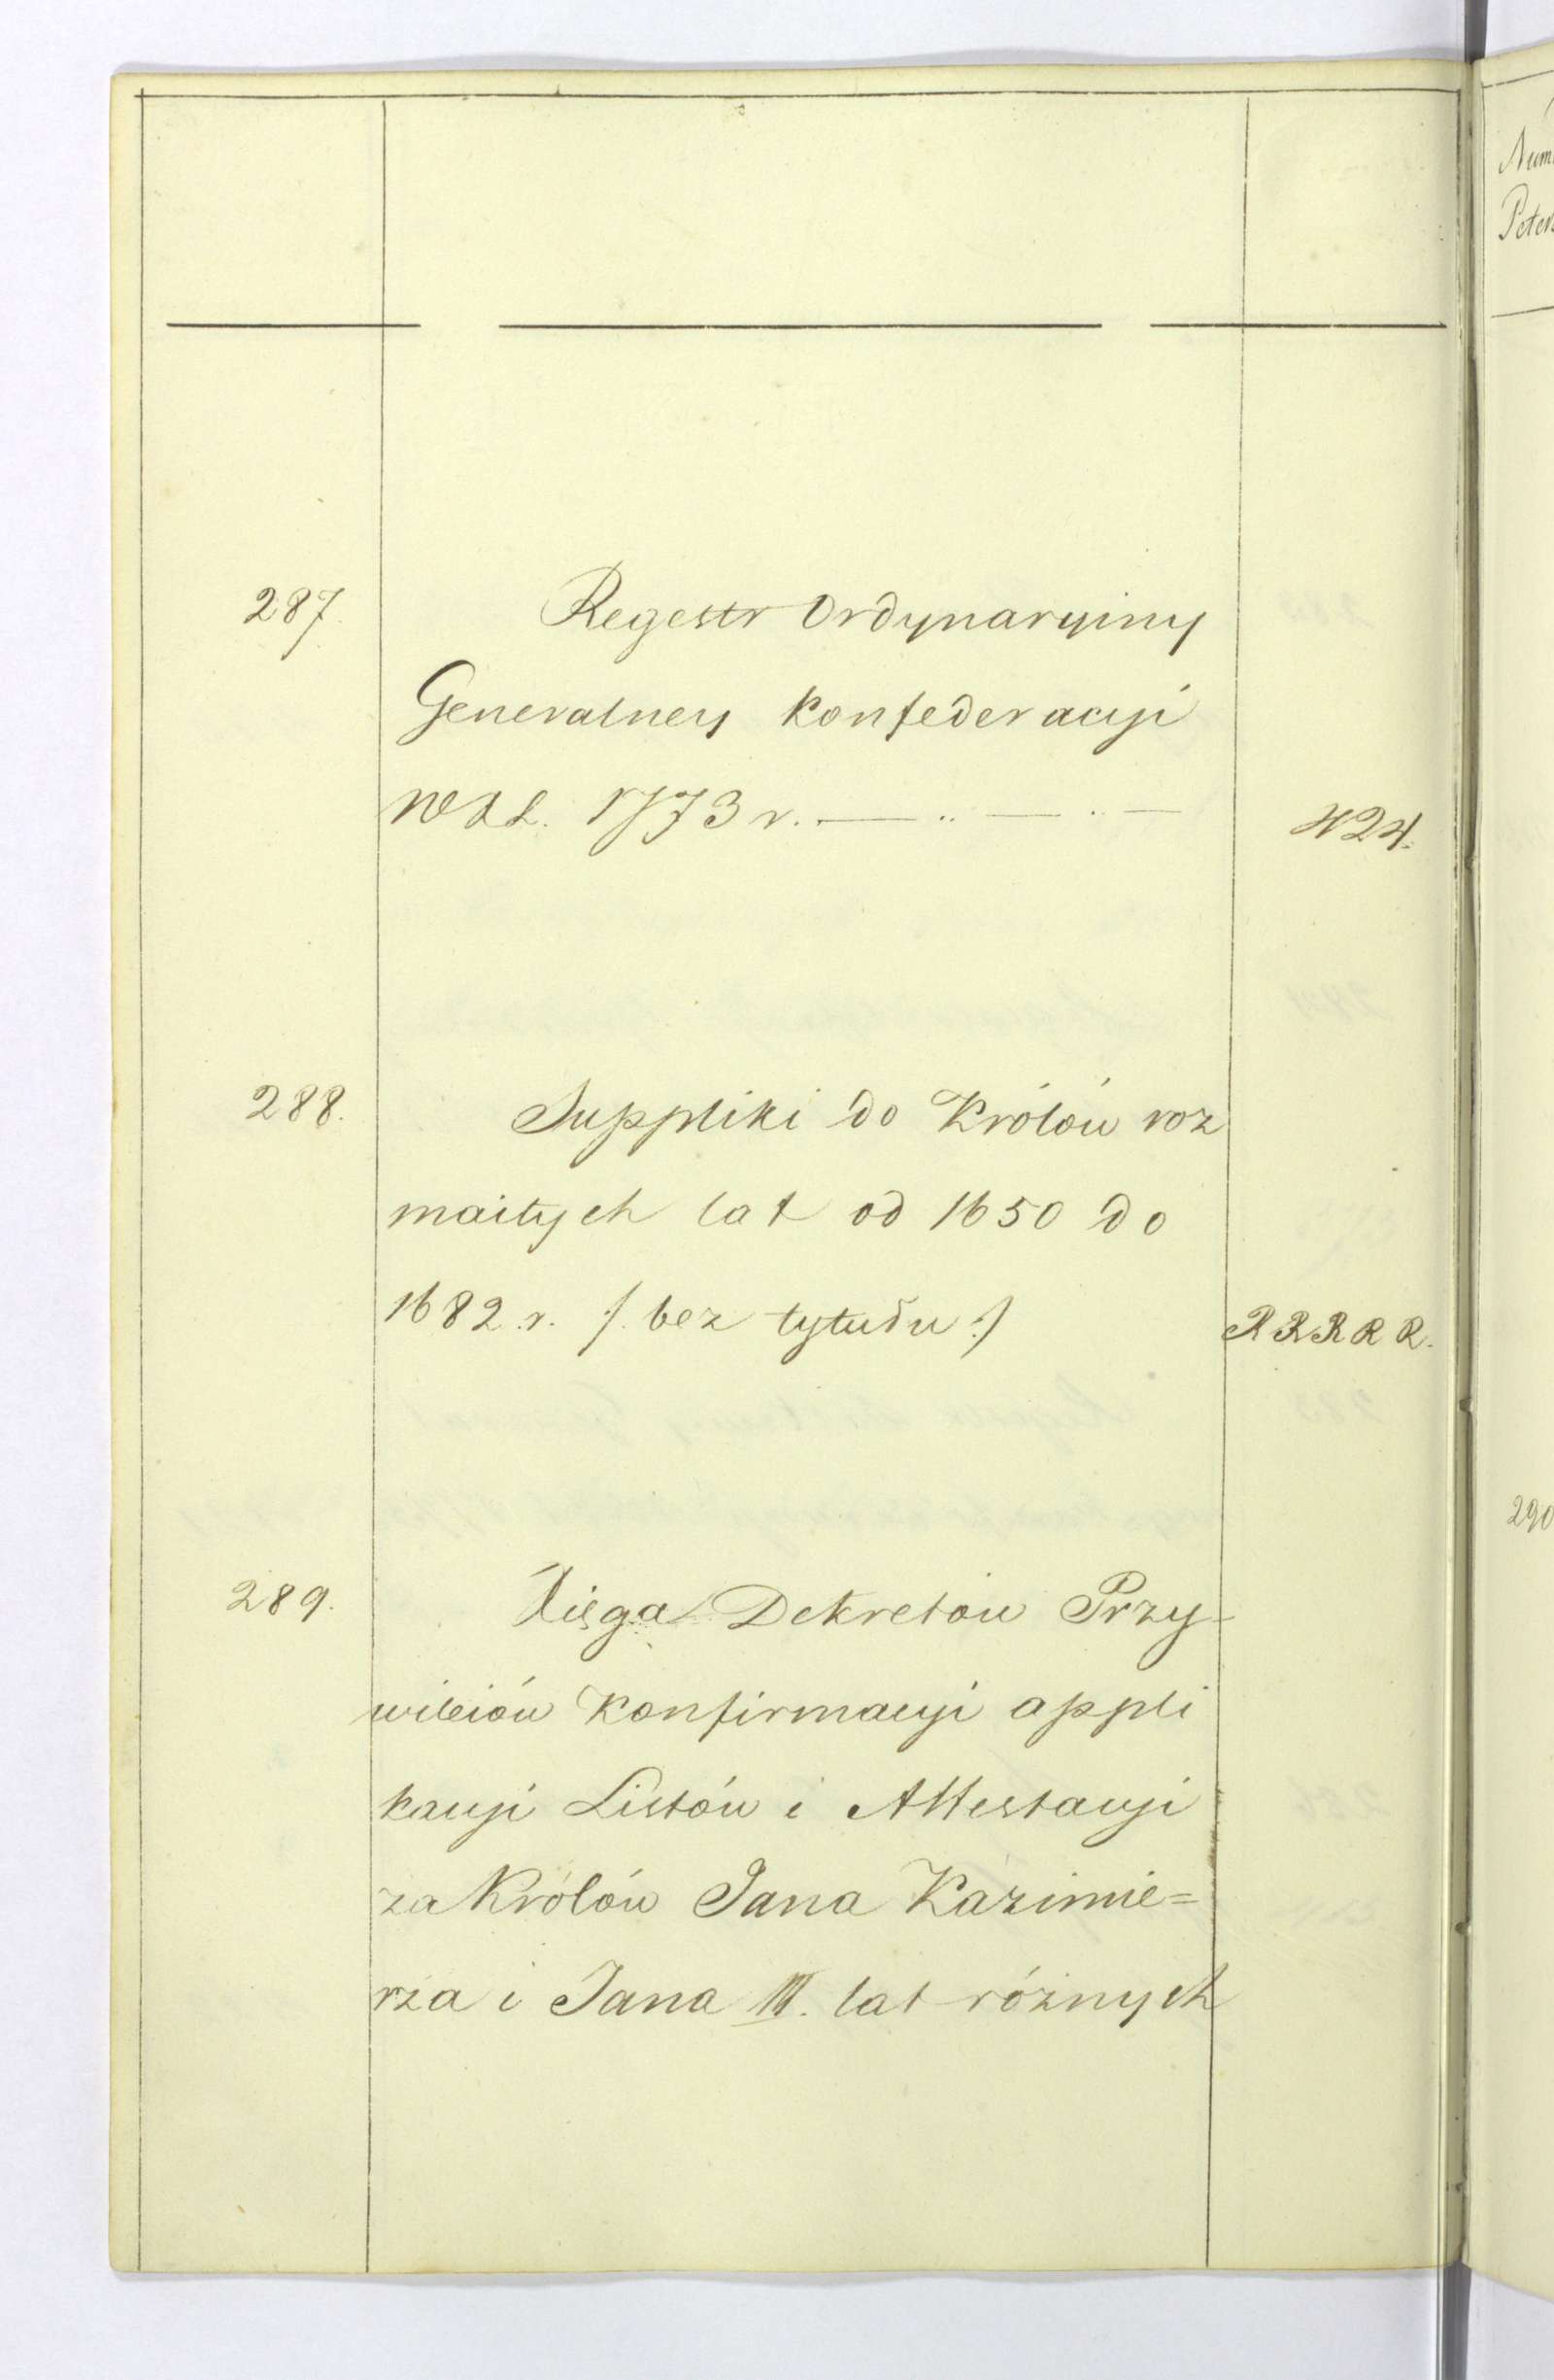 287.
Regestr Ordynaryiny
Generalney Konfederacyi
WXL. 1773 r. — .. — .. —
424.
288.
Suppliki do Królów roz
maitych lat od 1650 do
1682 r. /: bez tytułu :/
RRRRR.
289.
Xięga Dekretów Przy-
wileiów Konfirmacyi appli
kacyi Listów i Attestacyi
za Królów Jana Kazimie=
rza i Jana III. lat różnych
Num
Peters
290